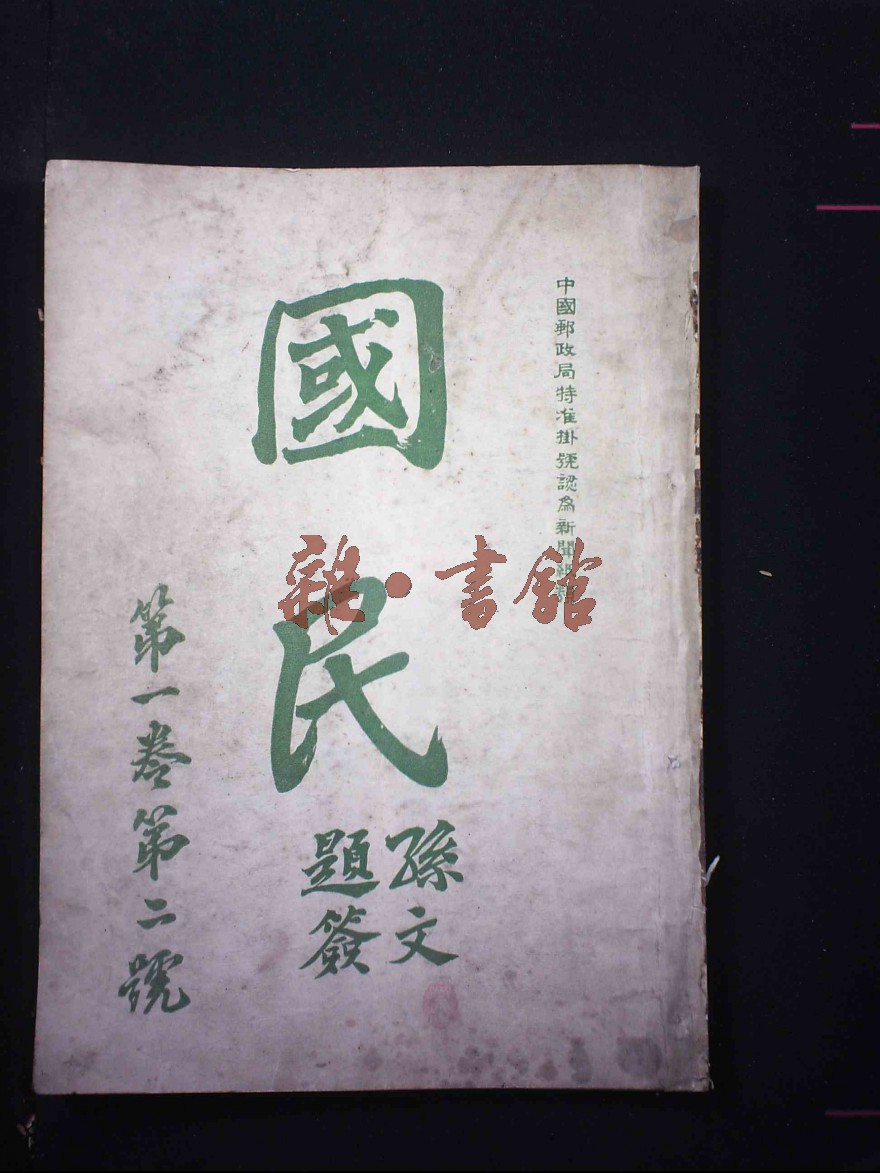 中國郵政局特准掛號認為新聞紙類
國民
孫文
題簽
第一卷第二號
雜·書館